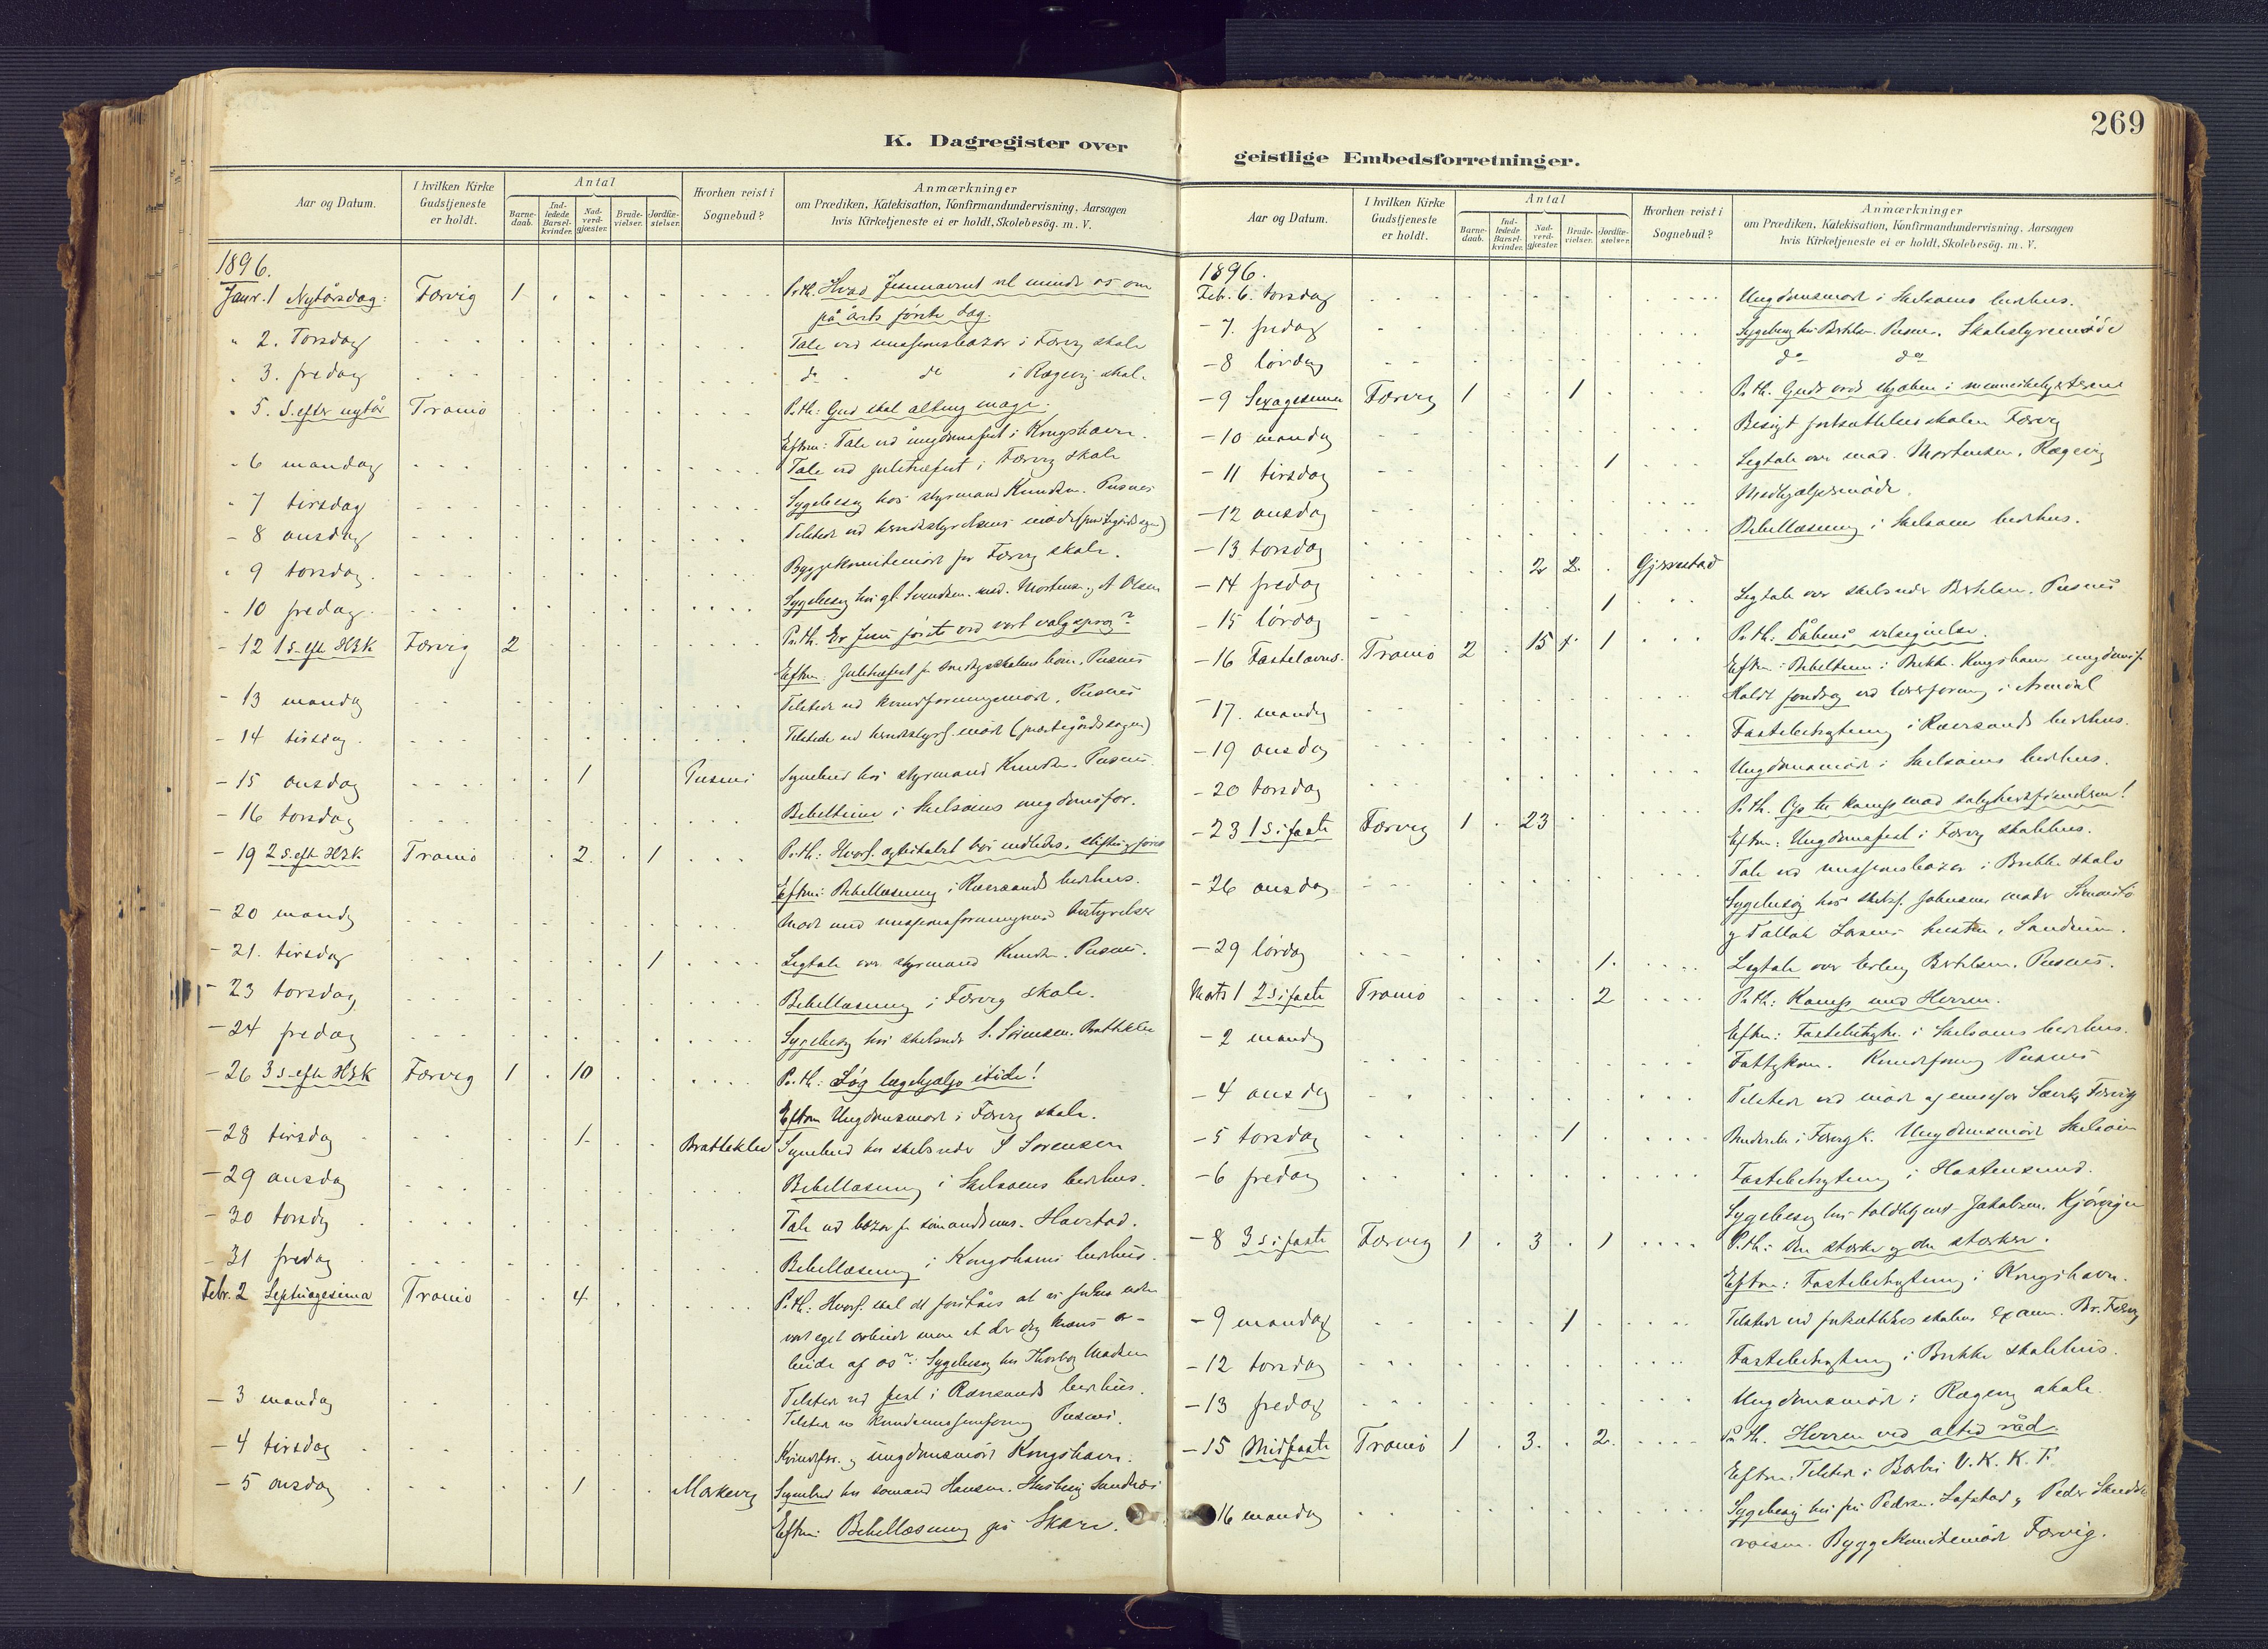 K. Dagregister over
Aar og Datum.
I hvilken Kirke Gudstjeneste er holdt.
Antal
Barne-daab.
Ind-ledede Barsel-kvinder.
Nad-verd-gjæster.
Brude-vielser.
Jordfæ-stelser.
Hvorhen reist i Sognebud?
Anmærkninger
om Prædiken, Katekisation, Konfirmandundervisning, Aarsagen
hvis Kirketjeneste ei er holdt, Skolebesög. m. V.
1896.
Janr. 1 Nytårsdag: Færvig 1 Pr.th. Hvad Jesunavnet vil minde os om
på årets første dag.
" 2. Torsdag Tale ved missionsbazar i Færvig skole
" 3. fredag do do i Rægevig skol.
" 5. S. efter nytår Tromö Pr.th: Gud skal alting mage.
Eftm: Tale ved ungdomsfest i Kongshavn.
" 6 mandag Tale ved juletræfest i Færvig skole
" 7 tirsdag Sygebesög hos styrmand Knudsen. Pusnes
- 8 onsdag Tilstede ved herredsstyrelsens möde
" 9 torsdag. Byggekomitemöde for Færvig skole.
" 10 fredag. Sygebesög hos gl. Svendsen. mad. Mortens. og A Olsen
- 12 1 S. eft H3K Færvig 2 Pr.th. Er Jesu første ord vort valgsprog?
Eftm. Juletræfest for søndagsskolens börn, Pusnes
- 13 mandag Tilstede ved kvindeforeningsmöde, Pusnes
- 14 tirsdag. Tilstede ved herredsstyrels. möde (præstegårdssagen)
- 15 onsdag 1 Pusnes Sognebud hos styrmand Knudsen. Pusnes.
- 16 torsdag Bibeltime i Skilsøens ungdomsfor.
- 19 2 S. eft H3K Tromö 2. 1 Pr.th:
Eftm: Bibellæsning i Rævesands bedehus.
- 20 mandag Möde med missionsforeningernes bestyrelser
- 21. tirsdag 1 Ligtale over styrmand Knudsen. Pusnes.
- 23 torsdag Bibellæsning i Færvig skole.
- 24 fredag Sygebesög hos skibsreder S. Sörensen. Brattekleiv
- 26 3 S. eft H3K Færvig 1 10 Pr.th: Søg lægehjælp itide!
Eftm Ungdomsmöde i Færvig skole.
- 28 tirsdag 1 Brattekleiv Sognebud hos skibsreder S Sörensen
- 29 onsdag Bibellæsning i Skilsøens bedehus.
- 30 torsdag Tale ved bazar for sömandsmis. Havstad.
- 31 fredag Bibellæsning i Kongshavns bedehus.
Febr. 2 Septuagesima Tromö 4 Pr.th: Hvorf. skal det forståes at vi frelses uden
vort eget arbeide men at der dog kræves ar-
beide af os?: Sygebesög hos Thorbor Madsen
- 3 mandag Tilstede ved fest i Rævesands bedehus.
Tilstede ved kvindemissionsforening Pusnes.
- 4 tirsdag Kvindefor. og ungdomsmöde Kongshavn.
- 5 onsdag 1 Morkevig Sognebud hos sömand Hansen. Husbesög Sandnes
Eftm: Bibellæsning på Skare.
269
geistlige Embedsforretninger.
Aar og Datum.
I hvilken Kirke Gudstjeneste er holdt.
Antal
Barne-daab.
Ind-ledede Barsel-kvinder.
Nad-verd-gjæster.
Brude-vielser.
Jordfæ-stelser.
Hvorhen reist i Sognebud?
Anmærkninger
om Prædiken, Katekisation, Konfirmandundervisning, Aarsagen
hvis Kirketjeneste ei er holdt, Skolebesög. m. V.
1896.
Feb. 6. torsdag Ungdomsmöde i Skilsøens bedehus.
- 7. fredag Sygebesög hos Bertelsen. Pusnes. Skolestyremöde
- 8 lördag do do
- 9 Sexagesima Færvig 1 1 Pr.th. Guds ords skjæbne i menneskehjerterne
- 10 mandag Besögt fortsættelsesskolen Færvig
- 11 tirsdag 1 Ligtale over mad. Mortensen, Rægevig
- 12 onsdag Medhjælpermöde.
- 13 torsdag Bibellæsning i Skilsøens bedehus.
- 14 fredag 2 2. Gjervstad
- 15 lördag 1 Ligtale over skibsreder Bertelsen. Pusnes
- 16 Fastelavns. Tromö 2 15 1 Pr.th: Dåbens velsignelse.
Eftm: Bibeltime i Brekke. Kongshavn ungdomsf.
- 17. mandag Holdt foredrag ved lærerforening i Arendal
- 19 onsdag Fastebetragtning i Rævesands bedehus.
- 20 torsdag Ungdomsmöde i Skilsøens bedehus.
- 23 1 S. i faste Færvig 1 23 Pr.th. Op til kamp mod salighedsfienden!
Eftm: Ungdomsfest i Færvig skolehus.
- 26 onsdag Tale ved missionsbazar i Brekke skole
Sygebesög hos skibsf. Johnsens moder
og Tallak Larsens hustru, Sandum.
- 29 lördag 1. Ligtale over Erling Bertelsen. Pusnes.
Marts 1 2 S. i faste Tromö 2 Pr.th: Kamp med Herren.
Eftm: Fastebetragtn. i Skilsøens bedehus.
- 2 mandag Fattigkom. Kvindeforening Pusnes
- 4 onsdag Tilstede ved möde af
- 5 torsdag 1 Brudevielse i Færvig k. Ungdomsmöde Skilsøen
- 6 fredag Fastebetragtning i Hastensund.
Sygebesög hos toldbetjent Jakobsen. Kjörvigen
- 8 3 S. i faste Færvig 1 3 1 Pr.th: Den stærke og den stærkere.
Eftm: Fastebetragtning i Kongshavn.
- 9 mandag 1 Tilstede ved fortsættelsesskolens examen. Br. Færvig
- 12 torsdag Fastebetragtning i Brekke skolehus.
- 13 fredag Ungdomsmöde i Rægevig skole.
- 15 Midfaste Tromö 1 3. 2. Pr.th. Herren ved altid råd
Eftm. Tilstede i Barbu U. K. K. F.
- 16 mandag Sygebesög hos fru Pedersen. Lofstad og Peder
Byggekomitemöde Færvig.